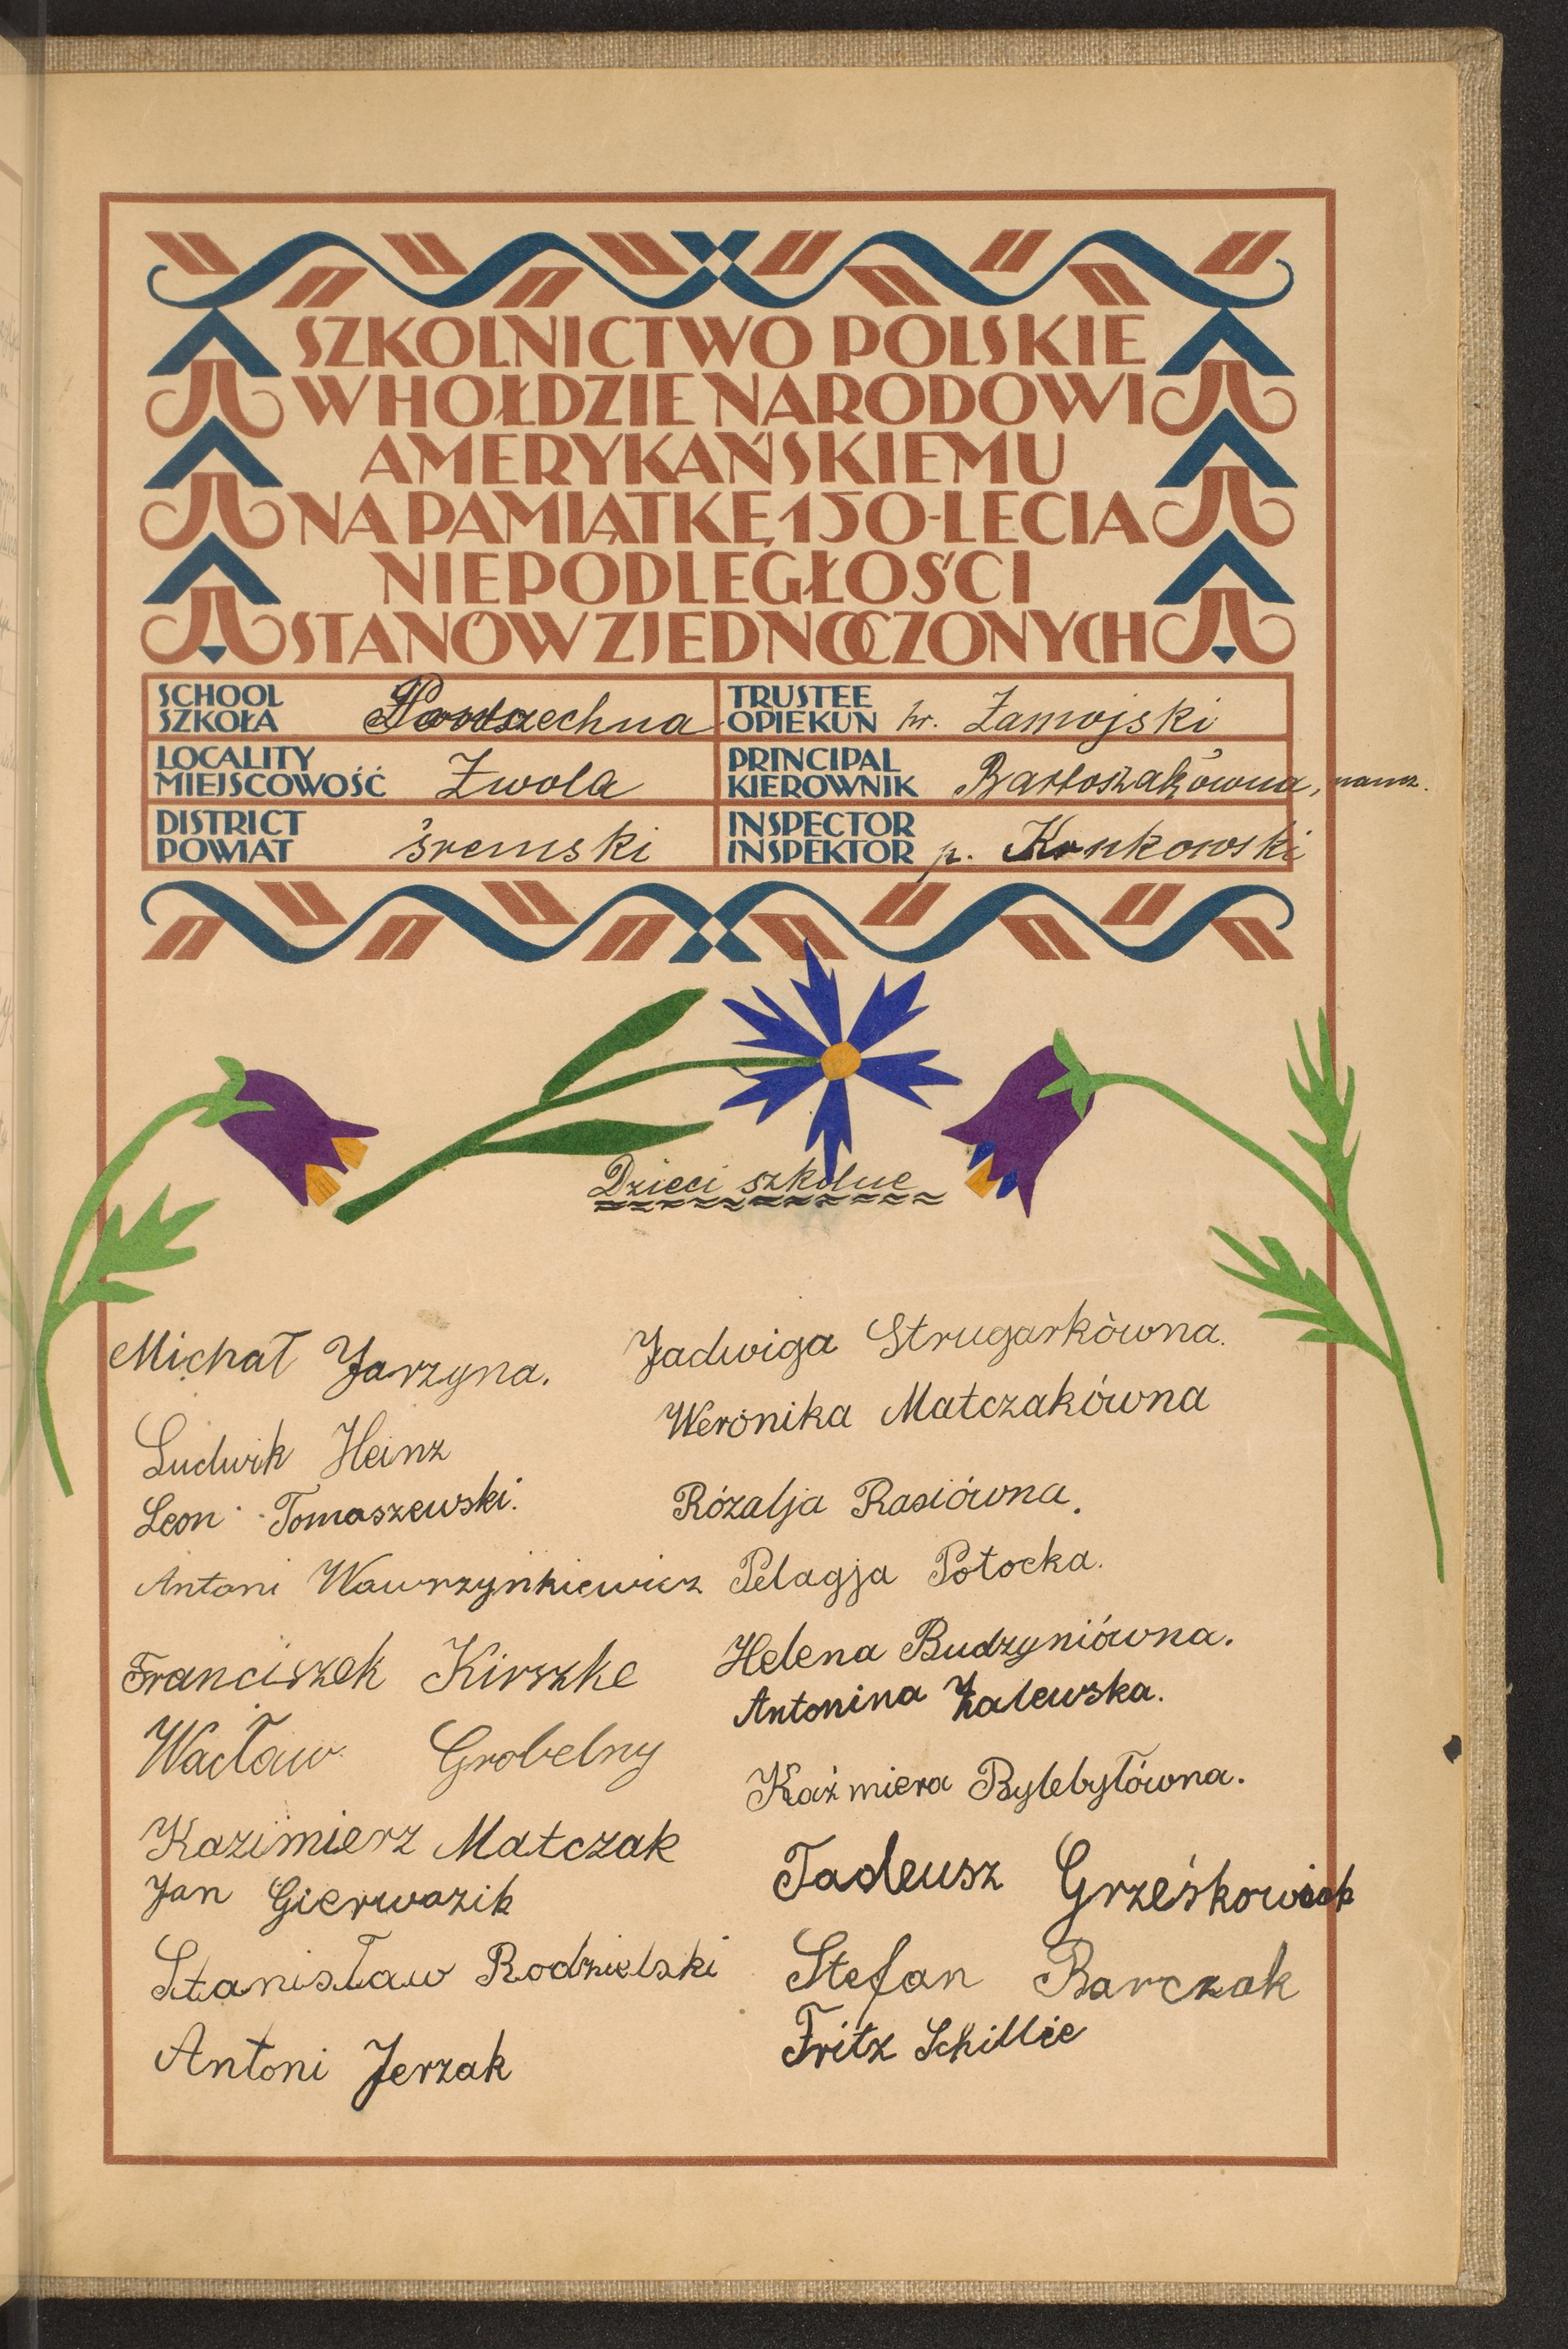 SZKOLNICTWO POLSKIE
W HOŁDZIE NARODOWI
AMERYKAŃSKIEMU
NA PAMIĄTKĘ 150-LECIA
NIEPODLEGŁOŚCI
STANÓW ZJEDNOCZONYCH
SCHOOL
SZKOŁA Powszechna
TRUSTEE
OPIEKUN hr. Zamojski
LOCALITY
MIEJSCOWOŚĆ Zwola
PRINCIPAL
KIEROWNIK Bartoszakówna, naucz.
DISTRICT
POWIAT śremski
INSPECTOR
INSPEKTOR p. Konkowski
Dzieci szkolne
Michał Jarzyna.
Ludwik Heinz
Leon Tomaszewski.
Antoni Wawrzynkiewicz
Franciszek Kirszke
Wacław Grobelny
Kazimierz Matczak
Jan Gierwazik
Stanisław Rodzielski
Antoni Jerzak
Jadwiga Strugarkówna.
Weronika Matczakówna
Rózalja Rasiówna.
Pelagja Potocka.
Helena Budzyniówna.
Antonina Zalewska.
Kaźmiera Bylebyłówna.
Tadeusz Grześkowiak
Stefan Barczak
Fritz Schillie